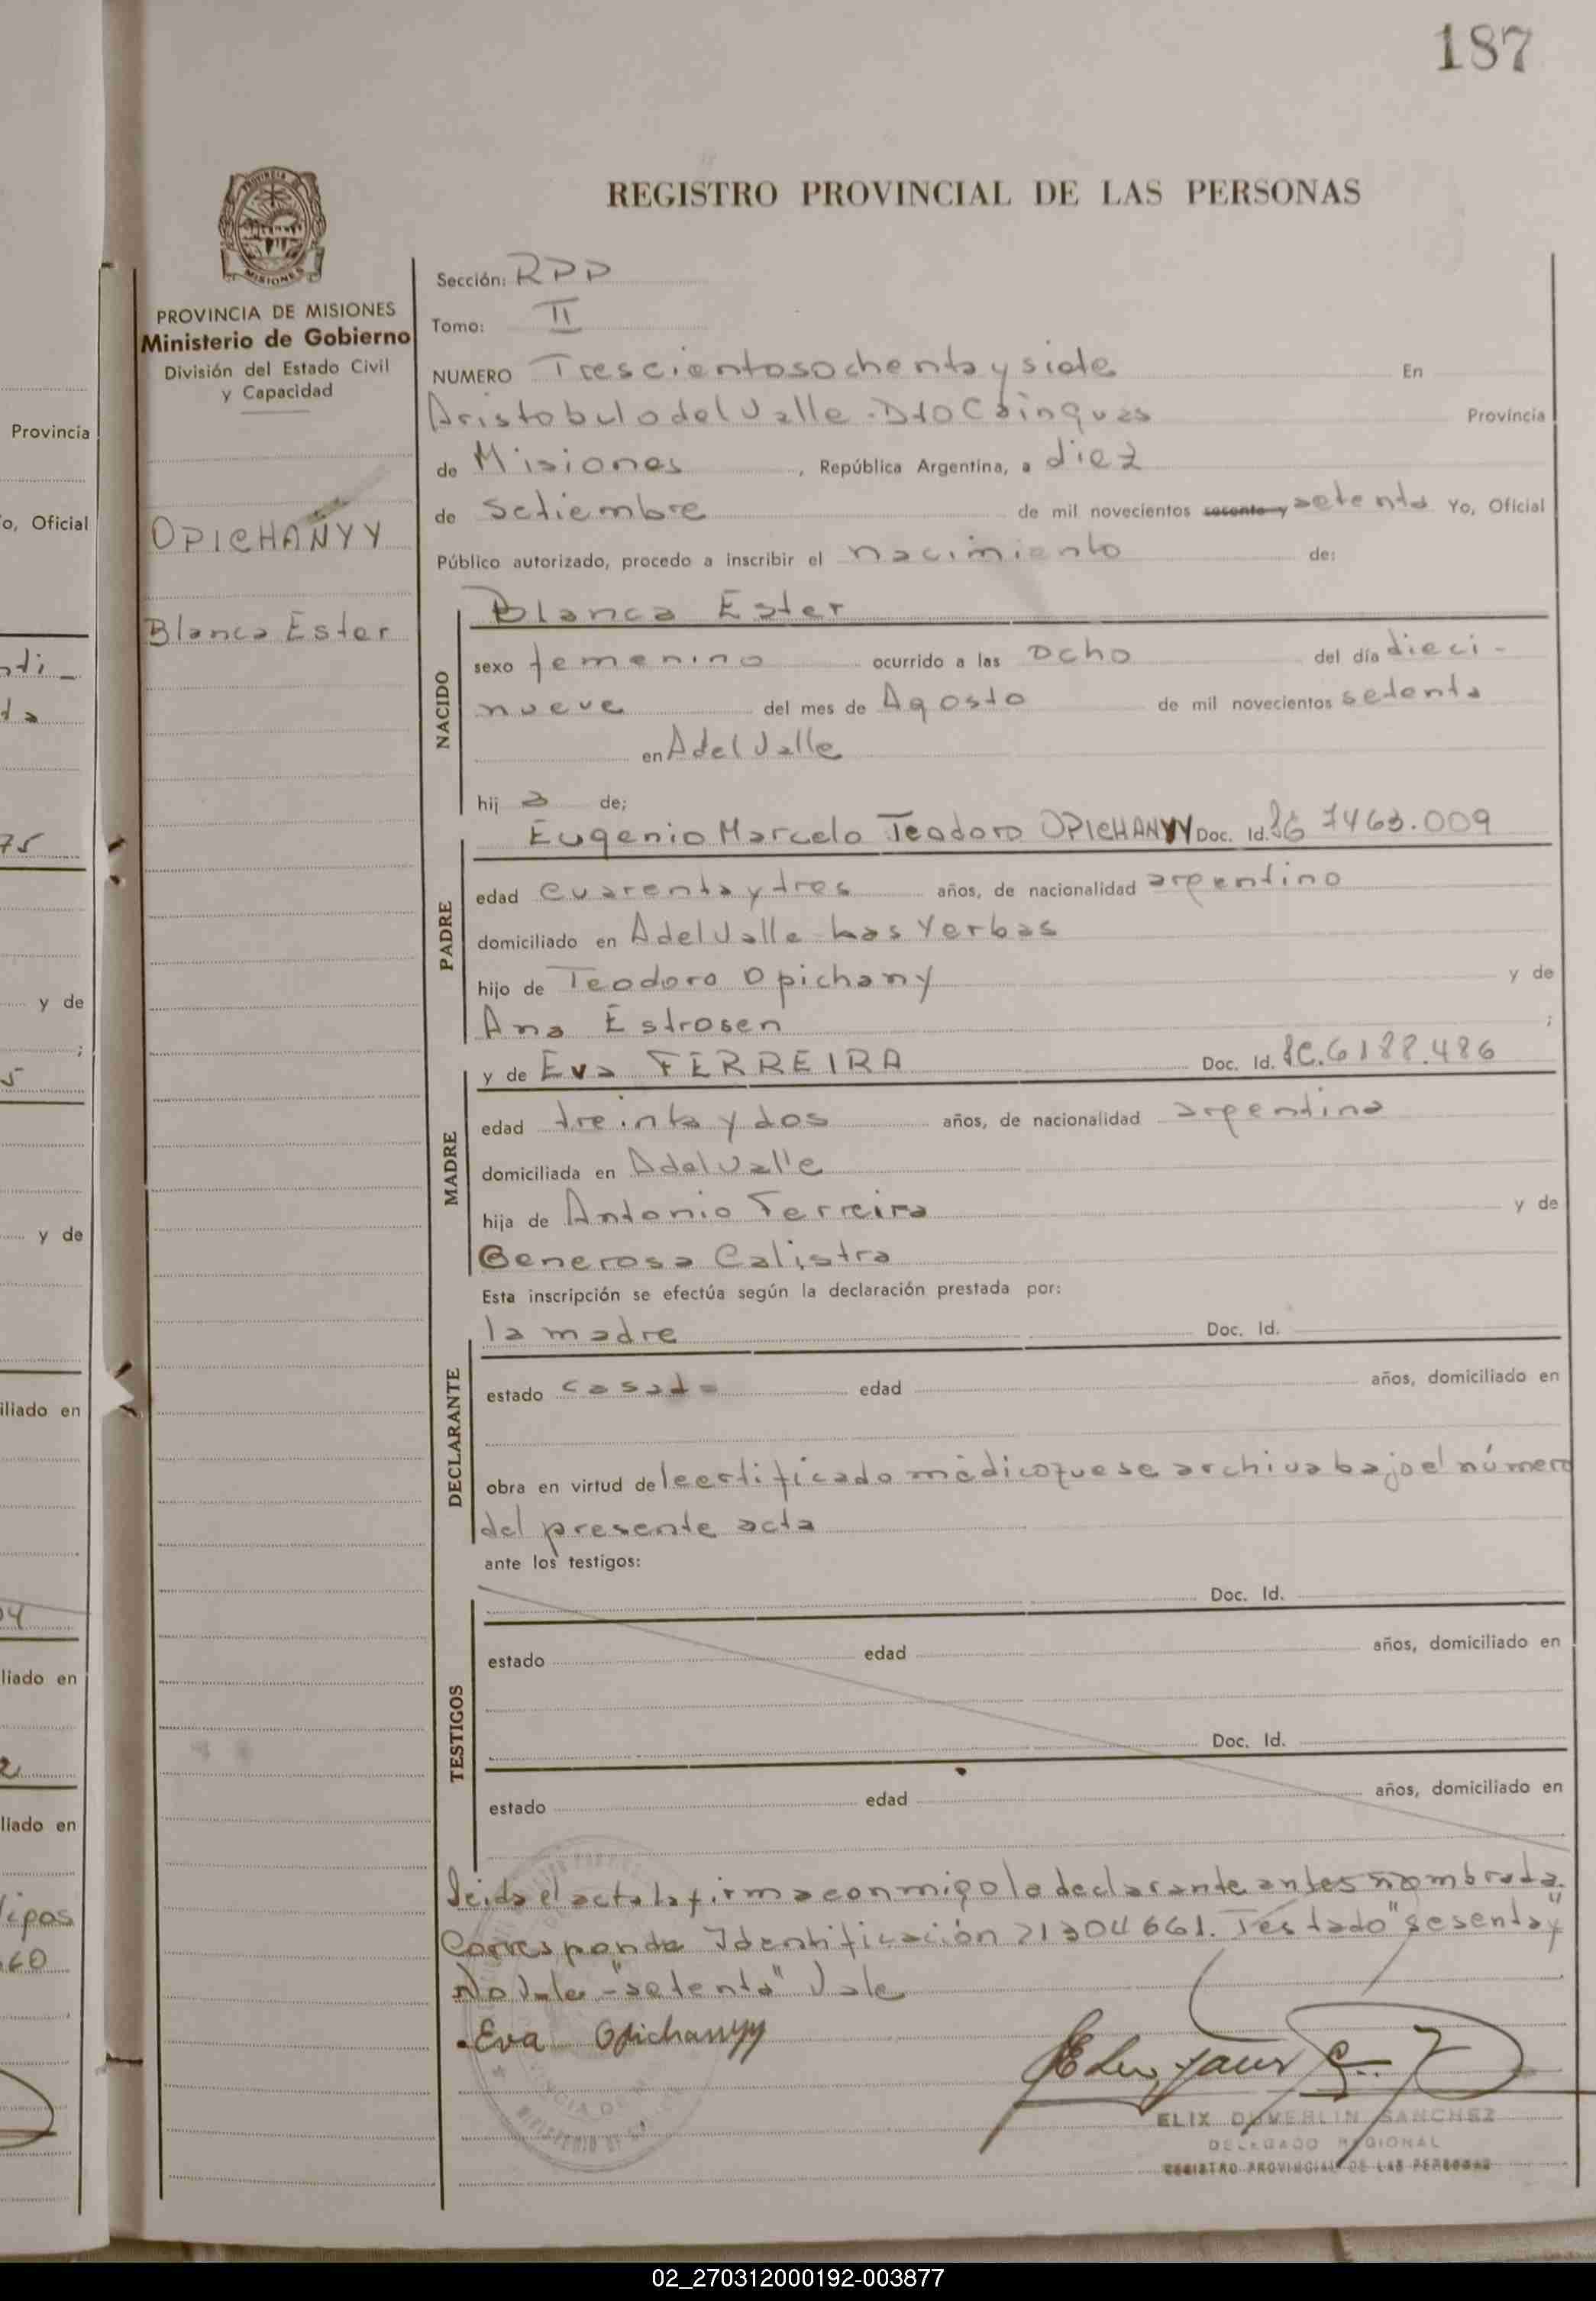 187
REGISTRO PROVINCIAL DE LAS PERSONAS
PROVINCIA DE MISIONES
Ministerio de Gobierno
División del Estado Civil
y Capacidad
OPICHAÑYY
Blanca Ester
Sección: RPP
Tomo: II
NUMERO Trescientosochenta y siete En
Aristobulo del Valle. Dto Cainguas Provincia
de Misiones, República Argentina, a diez
de Setiembre de mil novecientos sesenta y setenta Yo, Oficial
Público autorizado, procedo a inscribir el nacimiento de:
NACIDO
Blanca Ester
sexo femenino ocurrido a las ocho del día dieci-
nueve del mes de Agosto de mil novecientos setenta
en A del Valle
hij a de;
PADRE
Eugenio Marcelo Teodoro OPICHANYY Doc. Id. 7463.009
edad cuarenta y tres años, de nacionalidad argentino
domiciliado en A del Valle Las Yerbas
hijo de Teodoro Opichany y de
Ana Estrosen ;
MADRE
y de Eva FERREIRA Doc. Id. LC.6188.486
edad treinta y dos años, de nacionalidad argentina
domiciliada en A del Valle
hija de Antonio Ferreira y de
Generosa Calistra
Esta inscripción se efectúa según la declaración prestada por:
DECLARANTE
la madre Doc. Id.
estado casada edad años, domiciliado en
obra en virtud de l certificado médico que se archiva bajo el número
del presente acta
ante los testigos:
TESTIGOS
Doc. Id.
estado edad años, domiciliado en
Doc. Id.
estado edad años, domiciliado en
Leida el acta la firma conmigo la declarante antes nombrada.
Corresponde Identificación 21304661. Testado "sesenta y"
No Vale - "setenta" Vale
Eva Opichanyy
ELIX DUVERLIN SANCHEZ
DELEGADO REGIONAL
REGISTRO PROVINCIAL DE LAS PERSONAS
Provincia
o, Oficial
75
y de
;
5
y de
iliado en
04
liado en
2
liado en
60
02_270312000192-003877